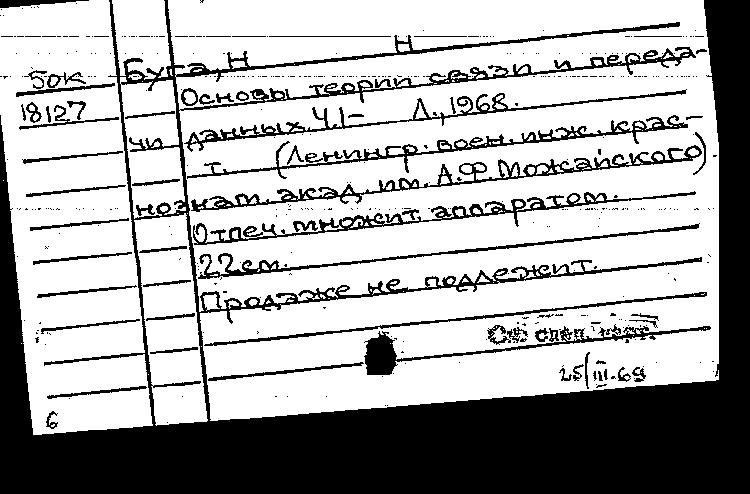 50к Буга, Н Н
18127 Основы теории связи и переда-
чи данных. Ч.1- Л., 1968.
т. (Ленингр. воен. инж. крас-
нознам. акад. им. А.Ф. Можайского).
Отпеч. множит. аппаратом.
22см.
Продаже не подлежит.
См спец. карт.
25/III-69
6